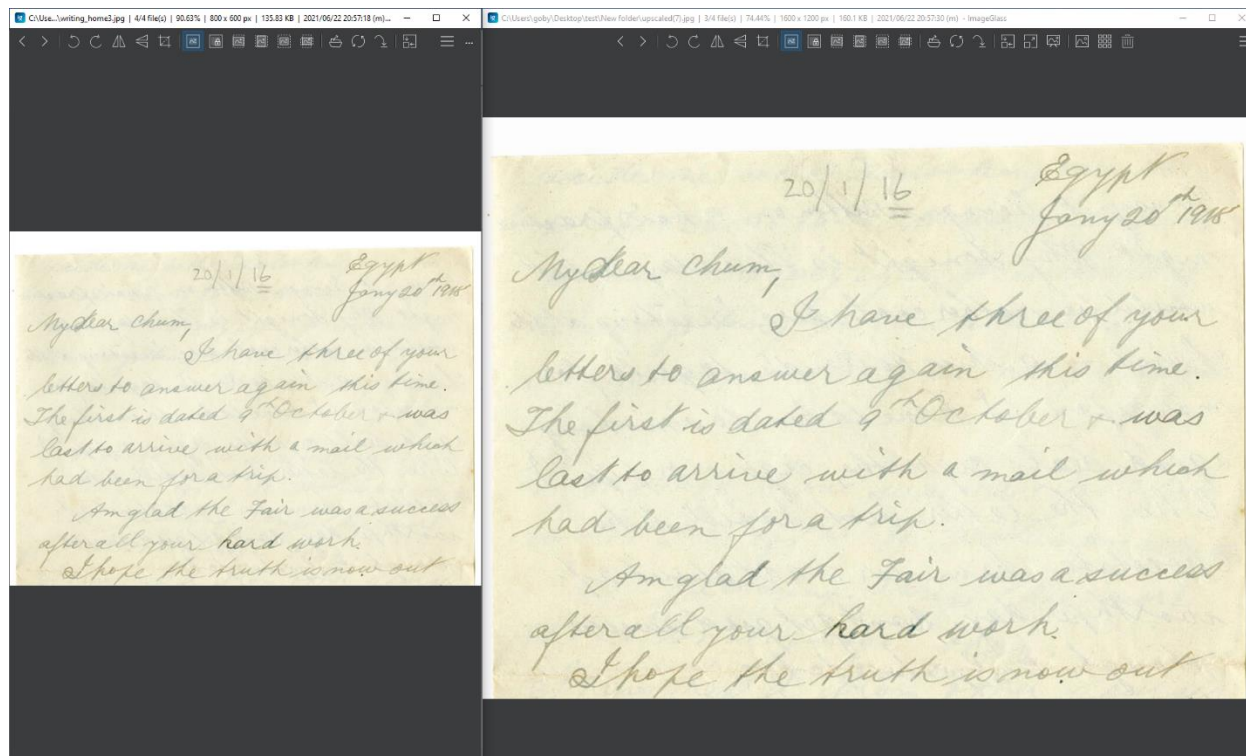 C:\Use...\writing_home3.jpg | 4/4 file(s) | 90.63% | 800 x 600 px | 135.83 KB | 2021/06/22 20:57:18 (m)...
Egypt
20/1/16
Jany 20th 1918
My dear Chum,
I have three of your
letters to answer again this time.
The first is dated 9th October + was
last to arrive with a mail which
had been for a trip.
Am glad the Fair was a success
after all your hard work.
I hope the truth is now out
C:\Users\goby\Desktop\test\New folder\upscaled(7).jpg | 3/4 file(s) | 74.44% | 1600 x 1200 px | 160.1 KB | 2021/06/22 20:57:30 (m) - ImageGlass
Egypt
20/1/16
Jany 20th 1918
My dear Chum,
I have three of your
letters to answer again this time.
The first is dated 9th October + was
last to arrive with a mail which
had been for a trip.
Am glad the Fair was a success
after all your hard work.
I hope the truth is now out